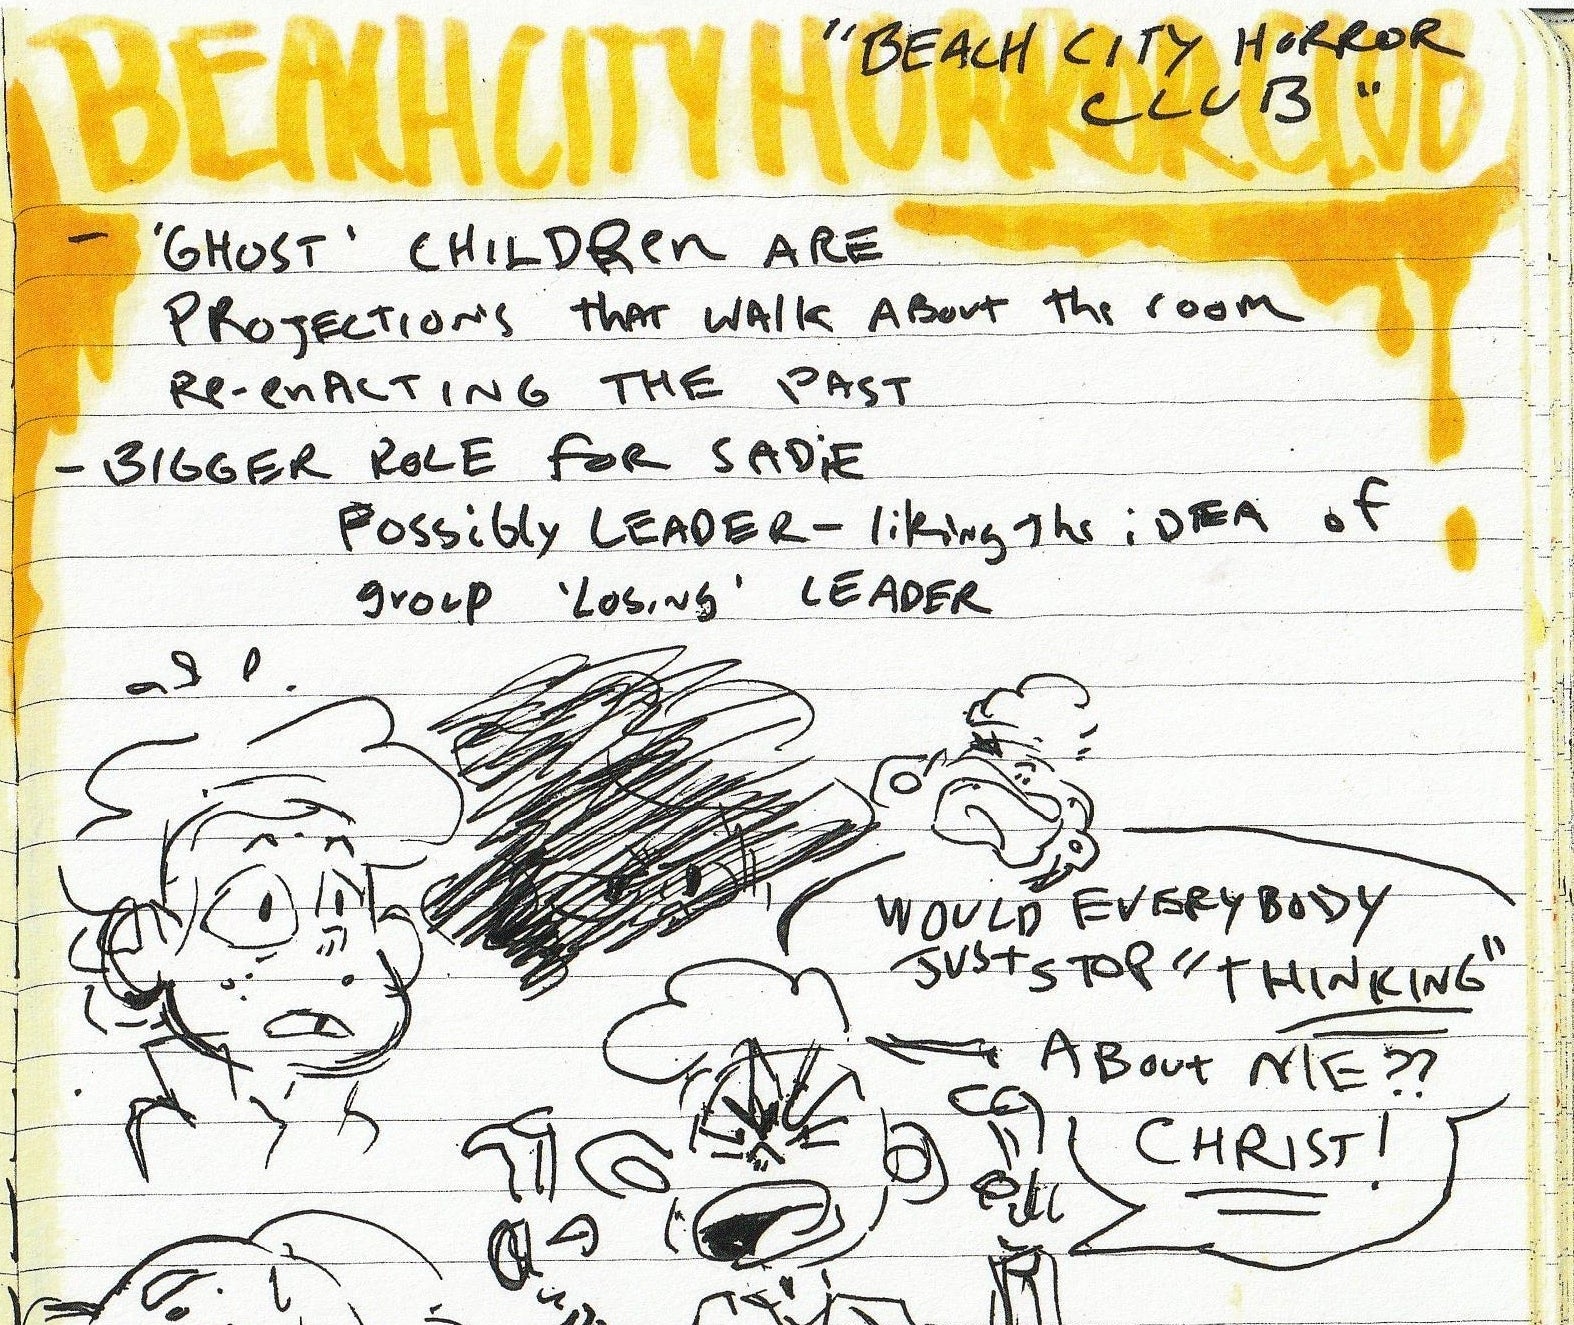 BEACH CITY HORROR CLUB
"BEACH CITY HORROR
CLUB"
- 'GHOST' CHILDRen ARE
PROJECTIONS tHAT WAlk ABout the room
Re-enACTING THE PAST
- BIGGER ROLE foR SADiE
Possibly LEADER - liking the iDEA of
group 'Losing' LEADER
WOULD EVERYBODY
JUST STOP "THINKING"
ABout ME??
CHRIST!